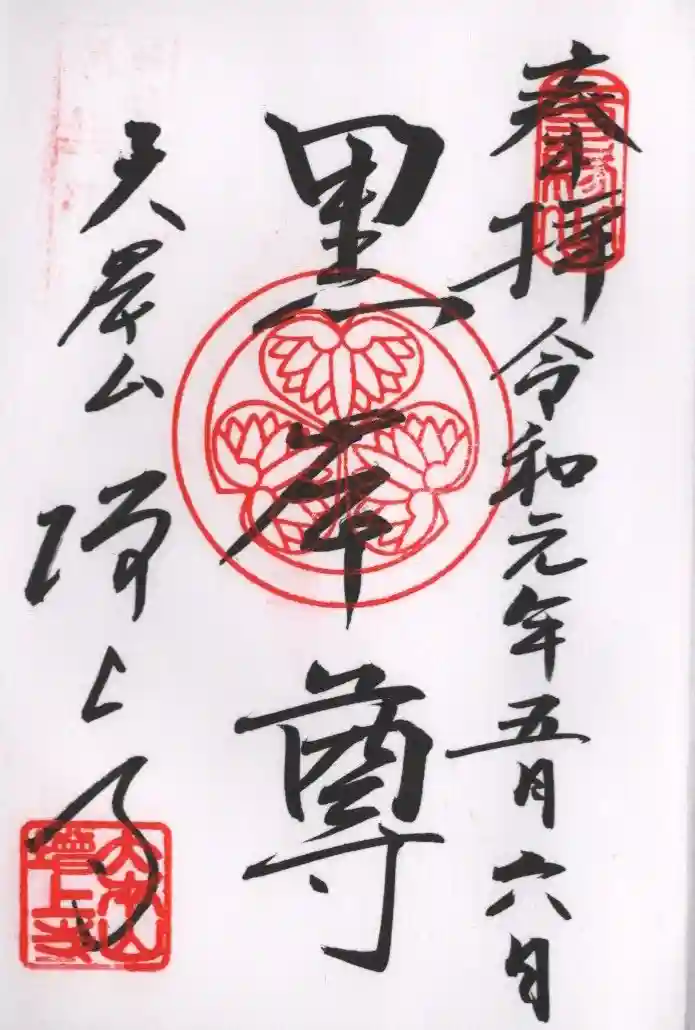 奉拝 令和元年五月六日
黒本尊
増上寺
大本山
增上寺